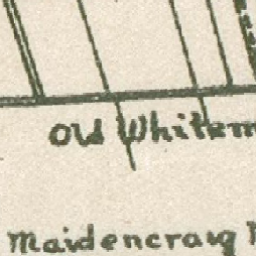 Old Whitem
Maidencraig